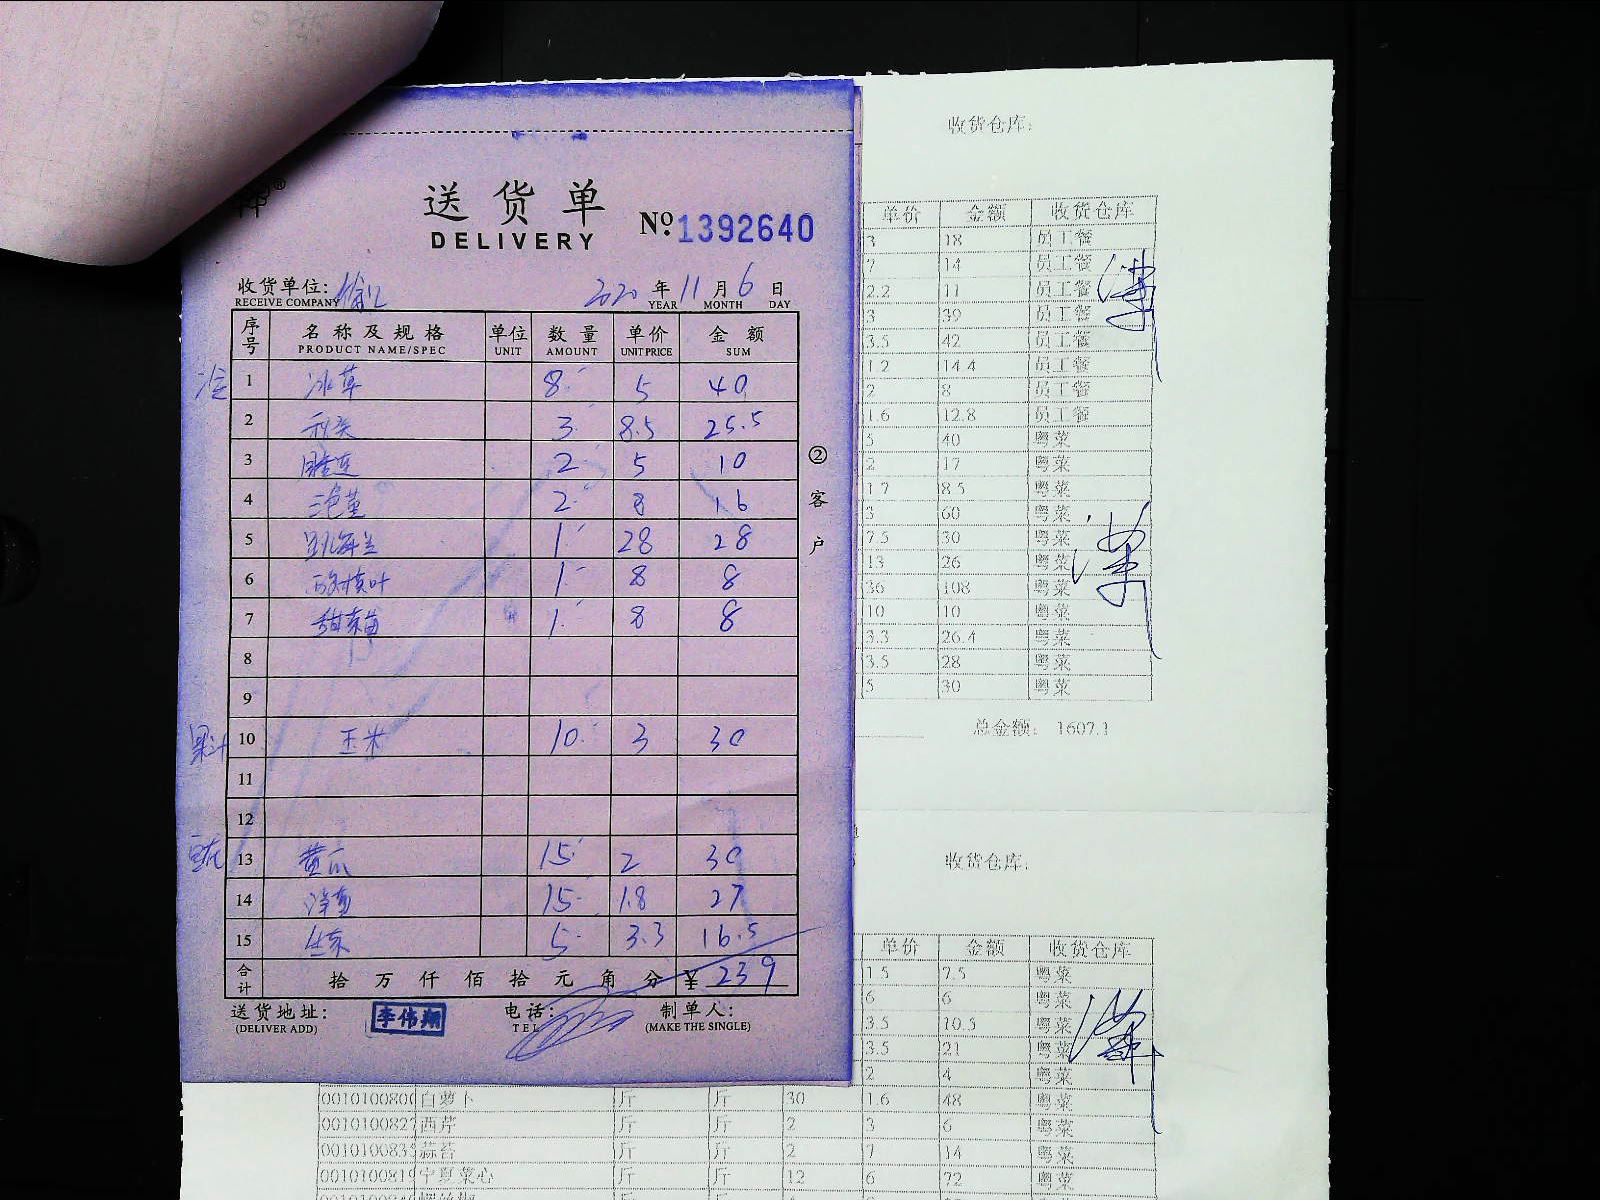 送货单
DELIVERY
№ 1392640
收货单位:
RECEIVE COMPANY
2020 年 11 月 6 日
YEAR MONTH DAY
序号 名称及规格 单位 数量 单价 金额
PRODUCT NAME/SPEC UNIT AMOUNT UNIT PRICE SUM
1 冰草 8 5 40
2 3 8.5 25.5
3 2 5 10
4 三色堇 2 8 16
5 28 28
6 1 8 8
7 甜菜苗 1 8 8
8
9
果汁 10 玉米 10 3 30
11
12
13 黄瓜 15 2 30
14 15 1.8 27
15 5 3.3 16.5
合计 拾 万 仟 佰 拾 元 角 分 ¥ 239
送货地址: 李伟翔 电话: 制单人:
(DELIVER ADD) TEL (MAKE THE SINGLE)
②客户
收货仓库:
单价 金额 收货仓库
3 18 员工餐
7 14 员工餐
2.2 11 员工餐
3 39 员工餐
3.5 42 员工餐
1.2 14.4 员工餐
2 8 员工餐
1.6 12.8 员工餐
5 40 粤菜
2 17 粤菜
1.7 8.5 粤菜
3 60 粤菜
7.5 30 粤菜
13 26 粤菜
36 108 粤菜
10 10 粤菜
3.3 26.4 粤菜
3.5 28 粤菜
5 30 粤菜
总金额: 1607.1
收货仓库:
单价 金额 收货仓库
1.5 7.5 粤菜
6 6 粤菜
3.5 10.5 粤菜
3.5 21 粤菜
2 4 粤菜
0010100800 白萝卜 斤 斤 30 1.6 48 粤菜
001010082 西芹 斤 斤 2 3 6 粤菜
001010083 蒜苔 斤 斤 2 7 14 粤菜
001010081 宁夏菜心 斤 斤 12 6 72 粤菜